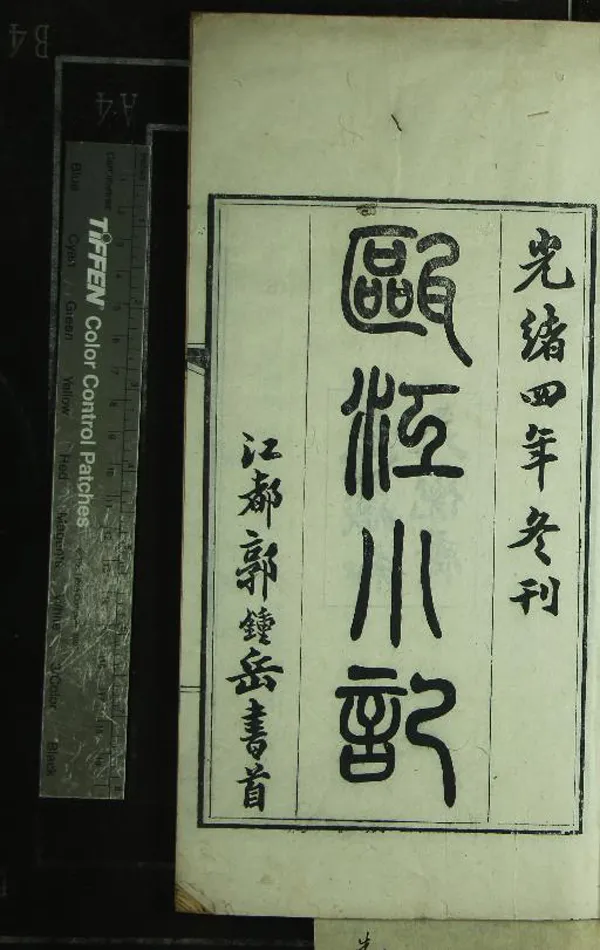 光緒四年冬刊
甌江小記
江都郭鍾岳書首
TIFFEN Color Control Patches
Blue
Cyan
Green
Yellow
Red
Magenta
White
3/Color
Black
Centimetres
A4
B4